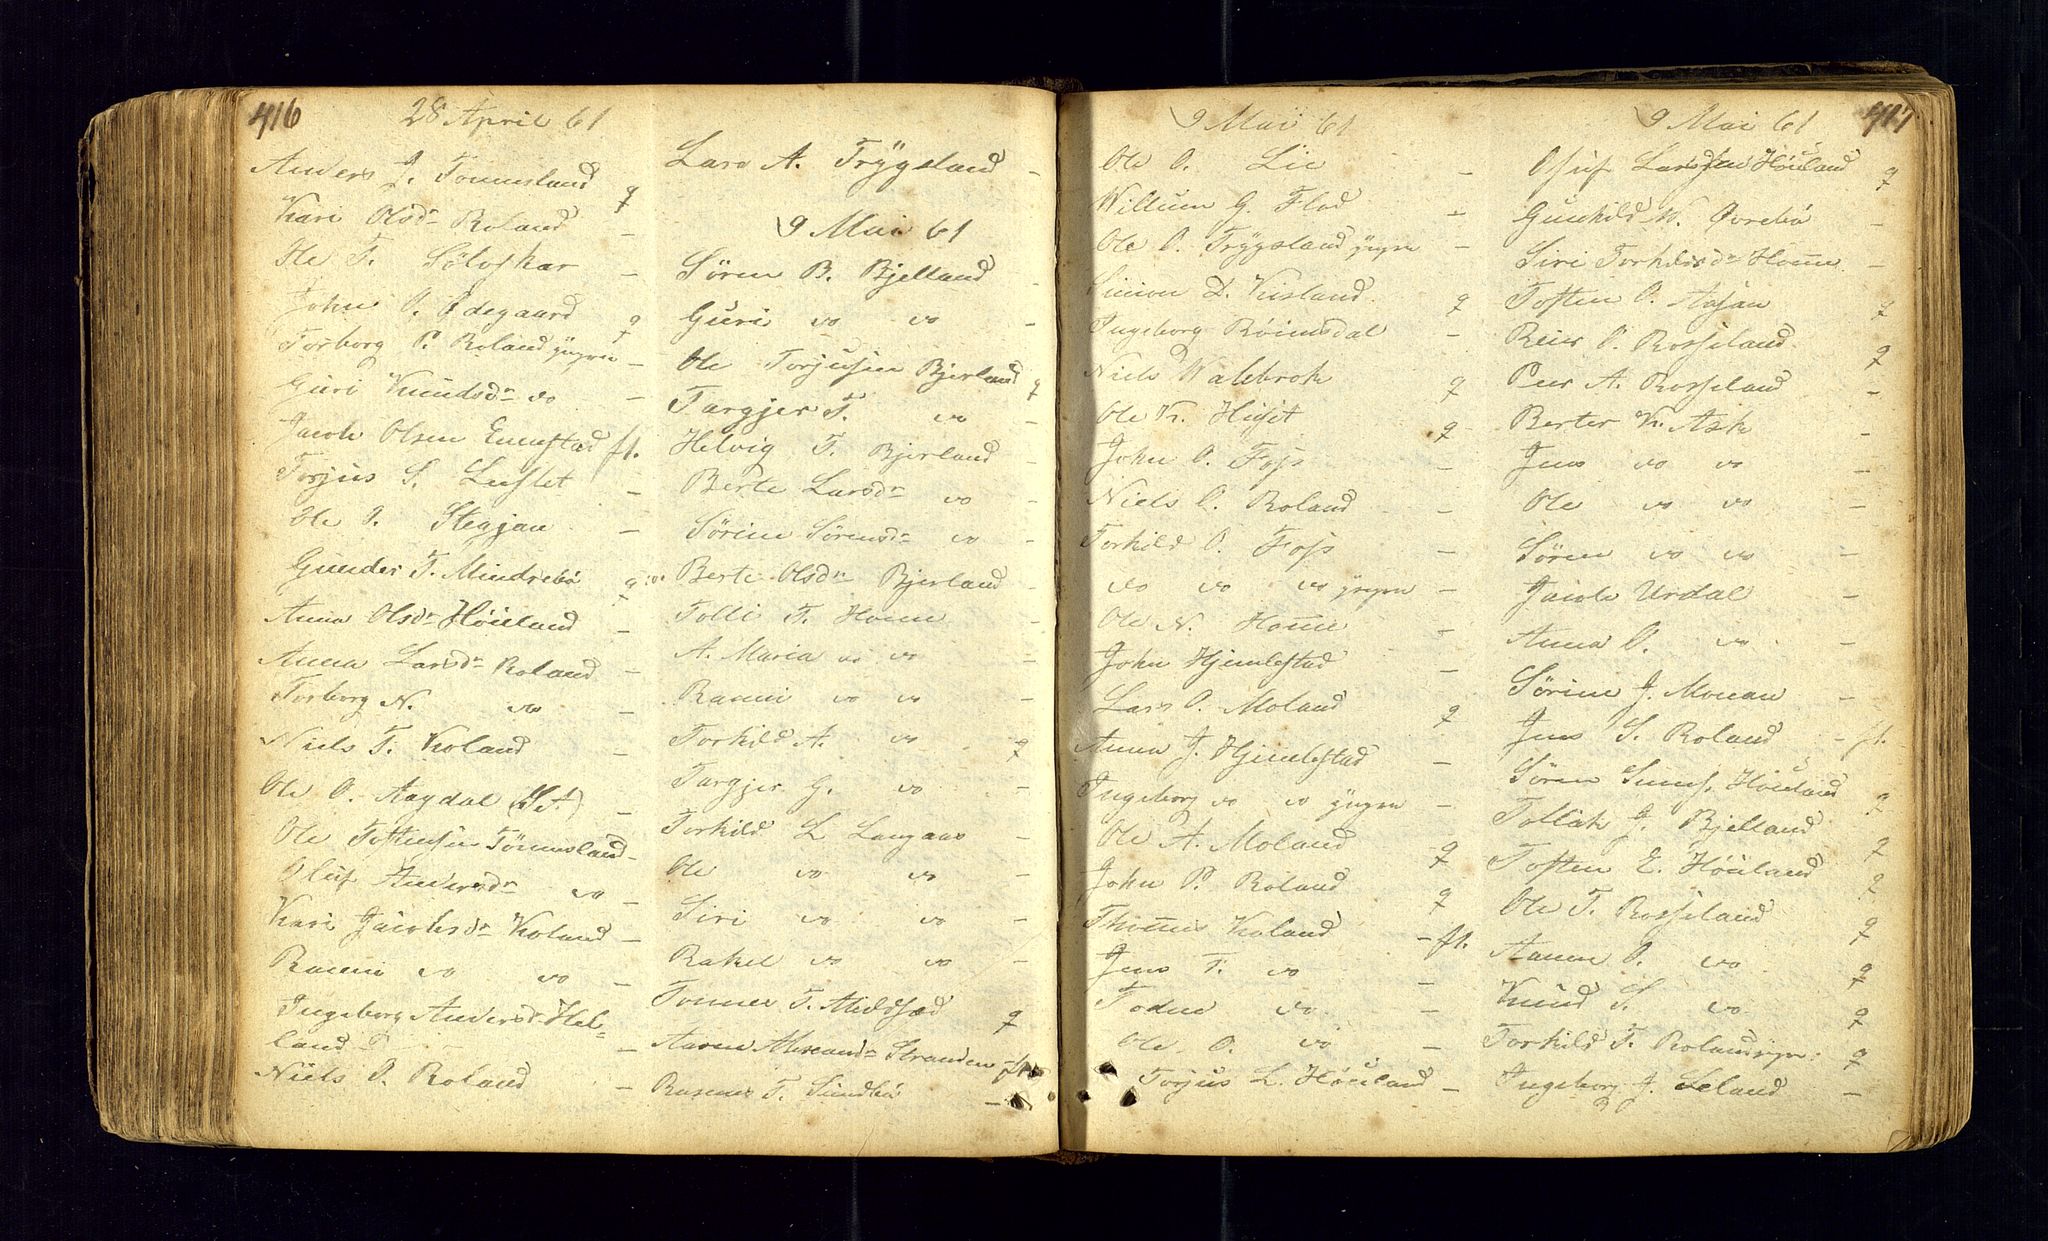 416
28 April 61
Anders J. Tönnesland q
Kari Olsdr Roland -
Ole T. Sölvskar -
John O. Ødegaard q
Torborg P. Roland yngre -
Guri Knudsdr vo -
Jacob Olsen Eunestad ft.
Torjus S. Leeslet -
Ole J. Stegjan -
Gunder T. Mindrebö q
Anna Olsdr Höieland -
Anna Larsdr Roland -
Torborg N. vo -
Niels T. Koland -
Ole O. Aagdal -
Ole Tostensen Tönnesland -
Oluf Andersdr vo -
Kari Jacobsdr Koland -
Ranni vo vo -
Ingeborg Andersdr Hel-
land -
Niels O. Roland -
Lars A. Trygsland -
9 Mai 61
Sören B. Bjelland -
Guri vo vo -
Ole Torjusen Bjerland q
Targjer T. vo -
Helvig T. Bjerland -
Berte Larsdr vo -
Sörine Sörensdr vo -
Berte Olsdr Bjerland -
Tolli T. Homme -
A. Maria vo vo -
Ranni vo vo -
Torkild A. vo q
Targjer G. vo -
Torkild L Langaas -
Ole vo vo -
Siri vo vo -
Rakel vo vo -
Tonnes T. Mildsæd q
Aaren Alexandr Stranden ft
Rasmus T. Sundbö -
9 Mai 61
Ole O. Lie -
Willum G. Flad -
Ole O. Trygsland yngre -
Simon D. Kisland q
Ingeborg Röimsdal -
Niels Walebrok q
Ole K. Huset q
John O. Foss -
Niels O. Roland -
Torkild O. Foss -
vo vo vo yngre -
Ole N. Homme -
John Hjemlestad -
Lars O. Moland q
Anna J. Hjemlestad -
Ingeborg vo vo yngre -
Ole A. Moland q
John P. Roland q
Thomas Koland - ft.
Jens T. vo -
Todne vo -
Ole O. vo -
Torjus L. Höieland -
9 Mai 61
417
Osuf Larssen Höieland q
Gunhild W. Øvrebö -
Siri Torkildsdr Homme -
Tosten O. Aasan q
Reier O. Rosseland q
Peer A. Rosseland -
Berter K. Ask -
Jens vo vo -
Ole vo vo -
Sören vo vo -
Jacob Urdal -
Anna O. vo -
Sörine J. Monan -
Jens S. Roland - ft.
Sören Simes. Höieland q
Tollak J. Bjelland q
Tosten E. Höieland q
Ole T. Rosseland q
Aanen O. vo q
Knud S. vo q
Torkild T. Roland yn: q
Ingeborg J. Leland -